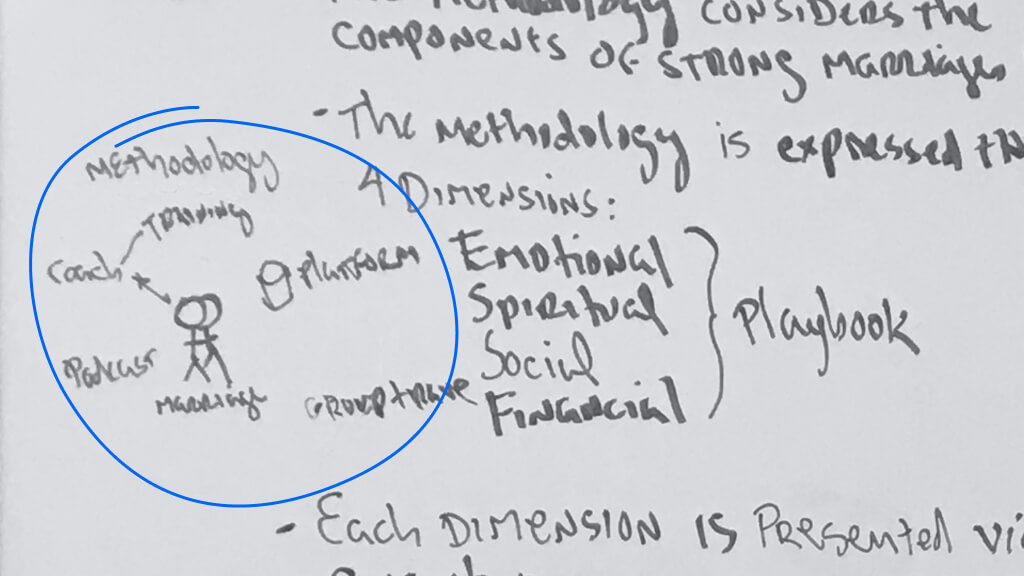 Methodology considers the
components of strong marriages
- The methodology is expressed
4 Dimensions:
Emotional
Spiritual
Social
Financial
Playbook
Methodology
Training
Coach
Platform
Podcast
Marriage
Group
- Each Dimension is Presented